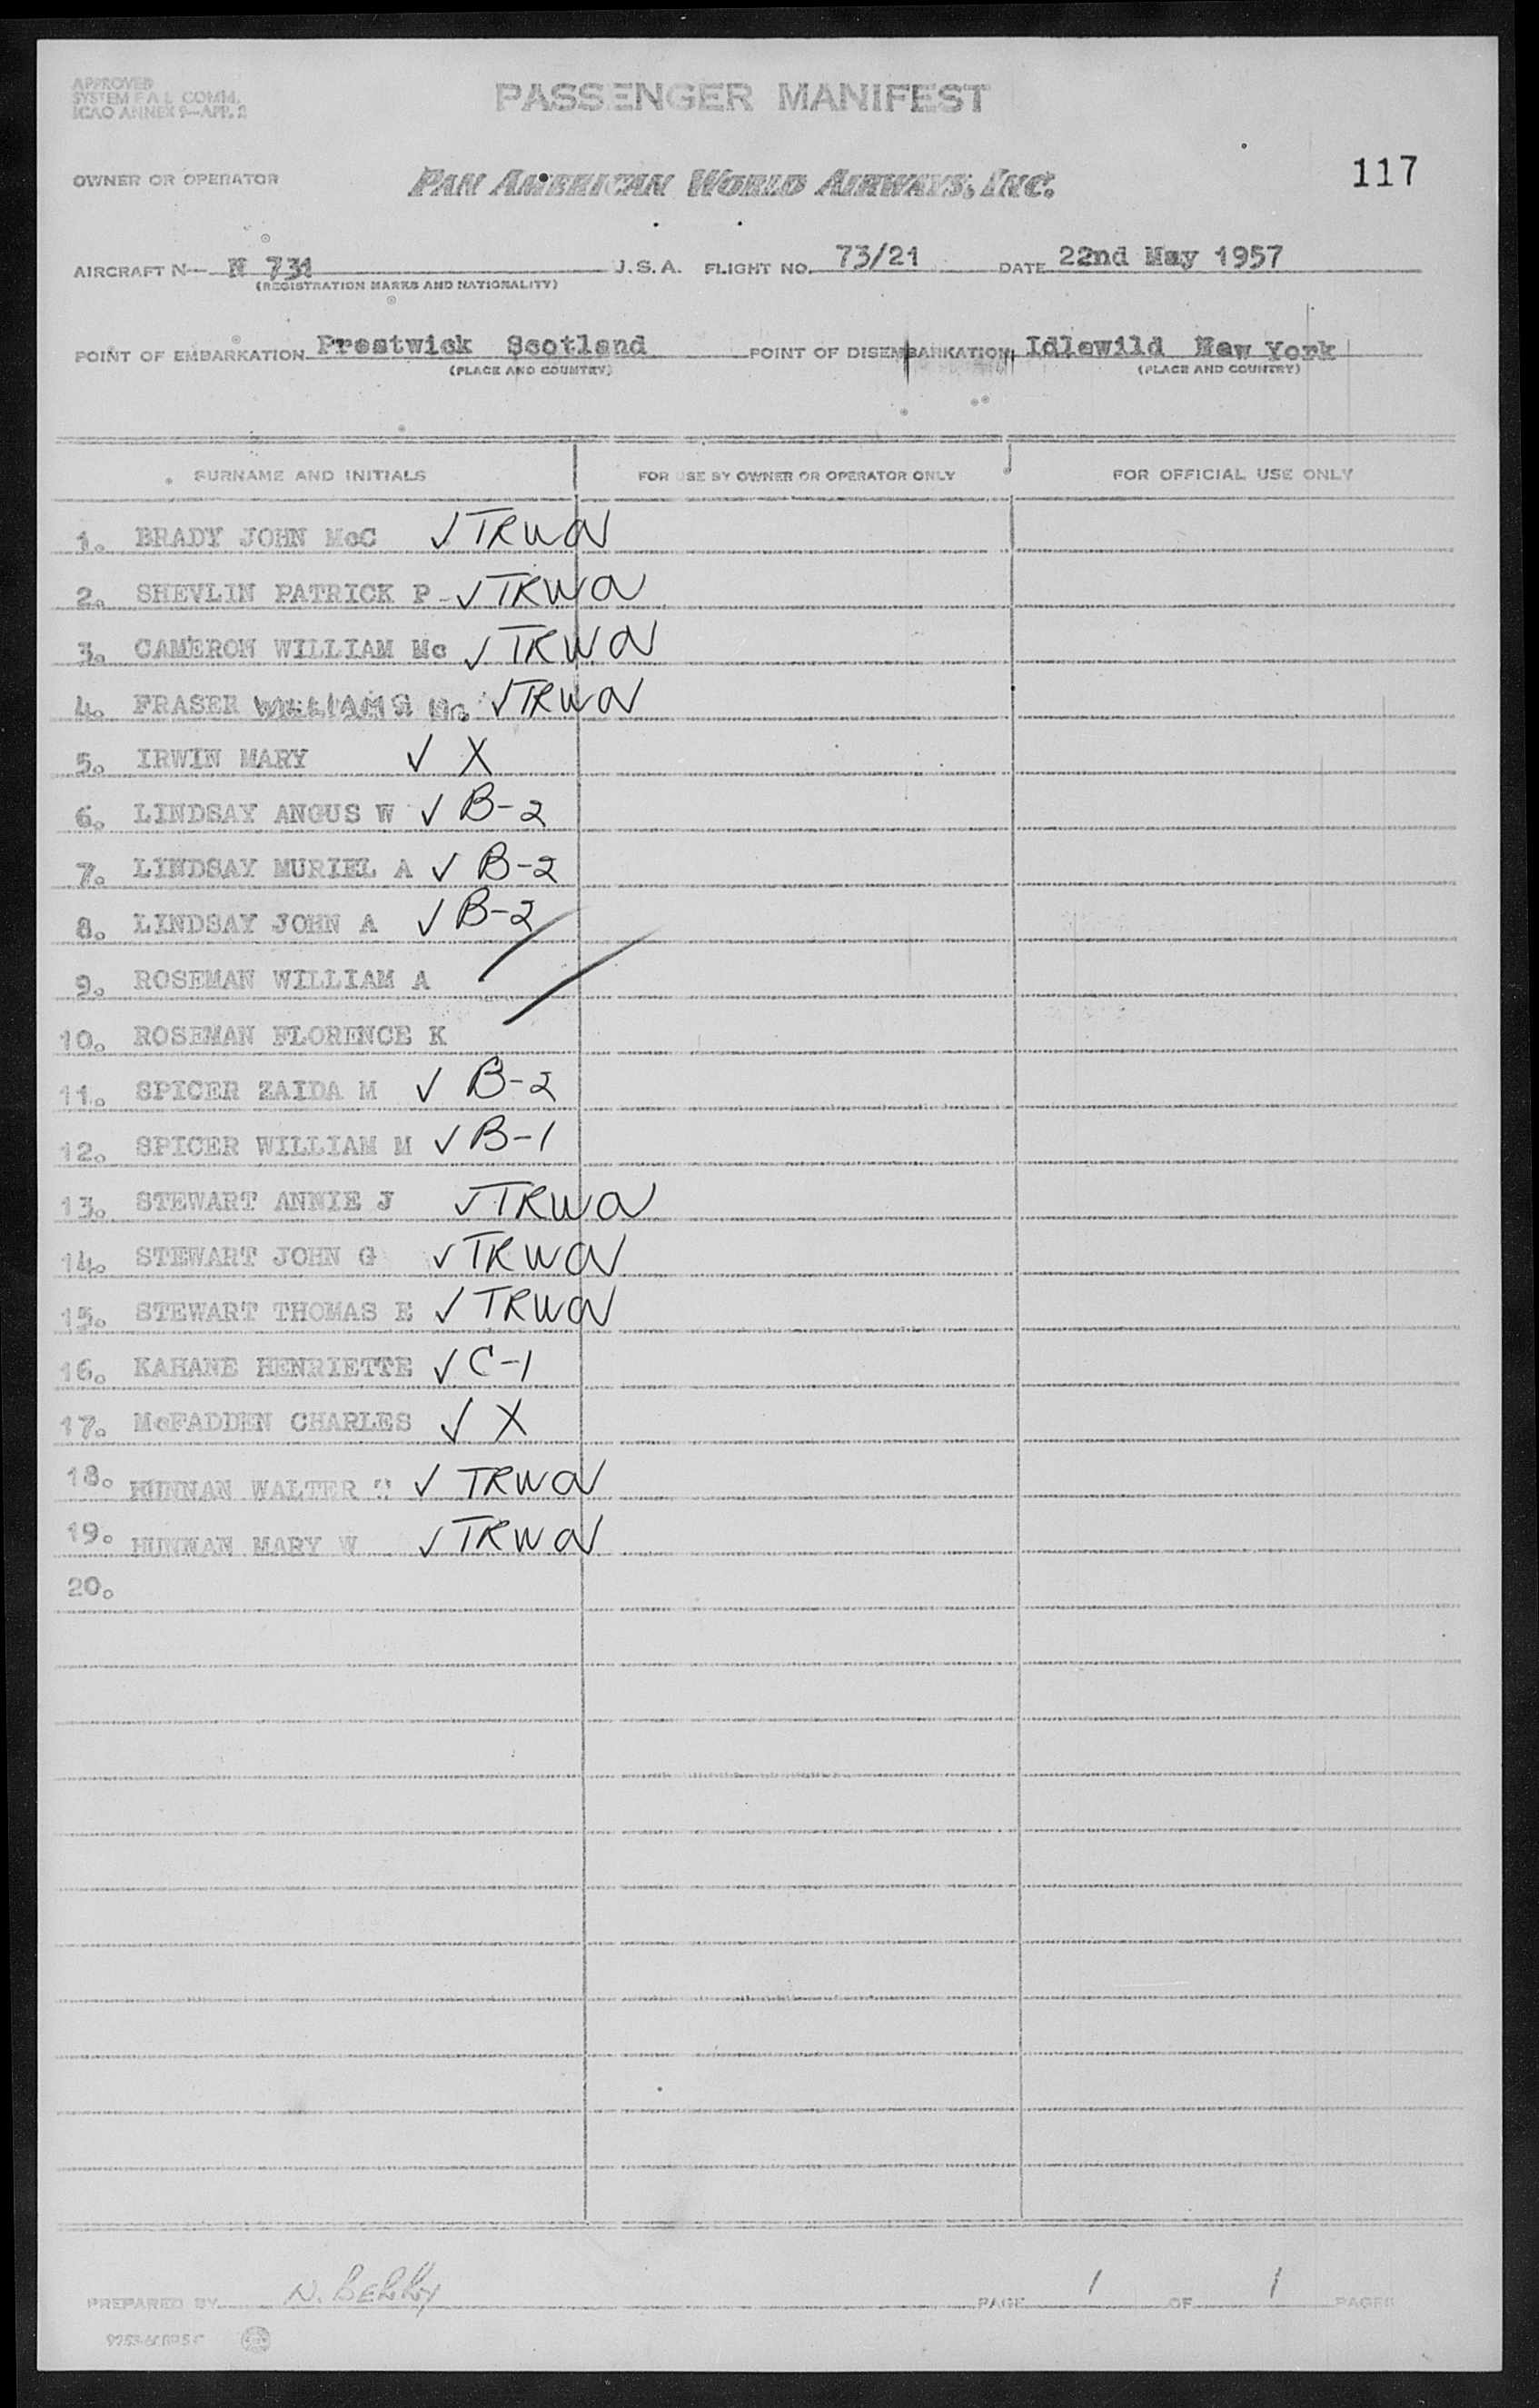 APPROVED
SYSTEM F A L COMM.
ICAO ANNEX 9—APP. 2
PASSENGER MANIFEST
117
OWNER OR OPERATOR PAN AMERICAN WORLD AIRWAYS, INC.
AIRCRAFT N— N 731 U.S.A. FLIGHT NO. 73/21 DATE 22nd May 1957
(REGISTRATION MARKS AND NATIONALITY)
POINT OF EMBARKATION Prestwick Scotland POINT OF DISEMBARKATION Idlewild New York
(PLACE AND COUNTRY) (PLACE AND COUNTRY)
SURNAME AND INITIALS FOR USE BY OWNER OR OPERATOR ONLY FOR OFFICIAL USE ONLY
1. BRADY JOHN McC ✓ TRWOV
2. SHEVLIN PATRICK P ✓ TRWOV
3. CAMERON WILLIAM Mc ✓ TRWOV
4. FRASER ✓ TRWOV
5. IRWIN MARY ✓ X
6. LINDSAY ANGUS W ✓ B-2
7. LINDSAY MURIEL A ✓ B-2
8. LINDSAY JOHN A ✓ B-2
9. ROSEMAN WILLIAM A
10. ROSEMAN FLORENCE K
11. SPICER ZAIDA M ✓ B-2
12. SPICER WILLIAM M ✓ B-1
13. STEWART ANNIE J ✓ TRWOV
14. STEWART JOHN G ✓ TRWOV
15. STEWART THOMAS E ✓ TRWOV
16. KAHANE HENRIETTE ✓ C-1
17. McFADDEN CHARLES ✓ X
18. HUNNAN WALTER T ✓ TRWOV
19. HUNNAN MARY W ✓ TRWOV
20.
PREPARED BY N. PAGE 1 OF 1 PAGES